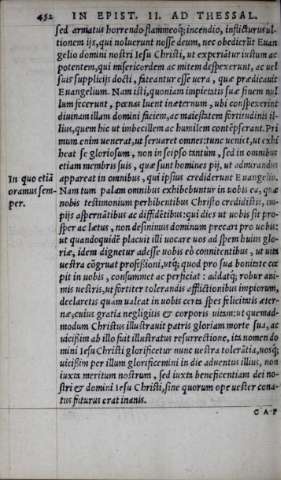 452 IN EPIST. II. AD THESSAL.
sed armatus horrendo flammeoq́; incendio, inflicturus ul-
tionem ijs, qui noluerunt nosse deum, nec obedierūt Euan
gelio domini nostri Iesu Christi, ut experiātur iustum ac
potentem, qui misericordem ac mitem despexerunt, ac uel
suis supplicijs docti, fateantur esse uera, quæ prædicauit
Euangelium. Nam isti, quoniam impietatis suæ finem nul
lum fecerunt, pœnas luent inæternum, ubi conspexerint
diuinam illam domini faciem, ac maiestatem fortitudinis il-
lius, quem hic ut imbecillem ac humilem contēpserant. Pri
mum enim uenerat, ut seruaret omnes: tunc ueniet, ut exhi
beat se gloriosum, non in seipso tantùm, sed in omnibus
etiam membris suis, quæ sunt homines pij, ut admirandus
appareat in omnibus, qui ipsius crediderunt Euangelio.
In quo etiā
oramus sem-
per.
Nam tum palàm omnibus exhibebuntur in uobis ea, quæ
nobis testimonium perhibentibus Christo credidistis, im-
pijs aspernātibus ac diffidētibus: qui dies ut uobis sit pro-
sper ac lætus, non desinimus dominum precari pro uobis:
ut quandoquidē placuit illi uocare uos ad spem huius glo-
riæ, idem dignetur adesse uobis eò connitentibus, ut uitā
uestra cōgruat professioni, utq́; quod pro sua bonitate cœ
pit in uobis, consummet ac perficiat: addatq́; robur ani-
mis uestris, ut fortiter tolerandis afflictionibus impiorum,
declaretis quàm ualeat in uobis certa spes felicitatis æter-
næ, cuius gratia negligitis & corporis uitam: ut quemad-
modum Christus illustrauit patris gloriam morte sua, ac
uicissim ab illo fuit illustratus resurrectione, ita nomen do
mini Iesu Christi glorificetur nunc uestra tolerātia, uosq́;
uicissim per illum glorificemini in die aduentus illius, non
iuxta meritum nostrum, sed iuxta beneficentiam dei no-
stri & domini Iesu Christi, sine quorum ope uester cona-
tus futurus erat inanis.
CAP